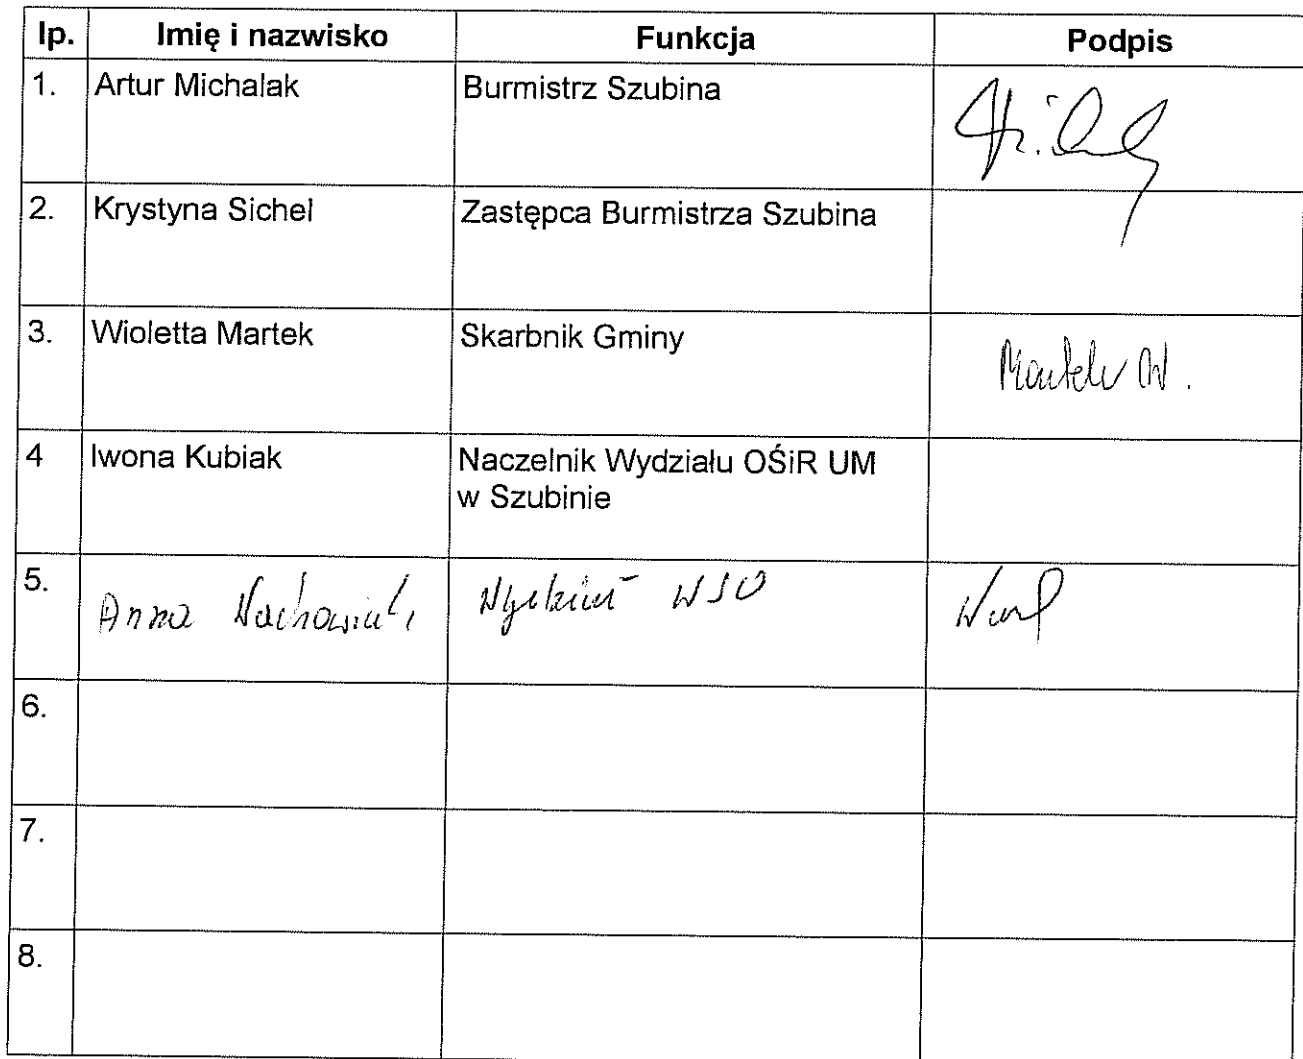 lp. Imię i nazwisko Funkcja Podpis
1. Artur Michalak Burmistrz Szubina
2. Krystyna Sichel Zastępca Burmistrza Szubina
3. Wioletta Martek Skarbnik Gminy Martek W.
4 Iwona Kubiak Naczelnik Wydziału OŚiR UM
w Szubinie
5. Anna WSO
6.
7.
8.